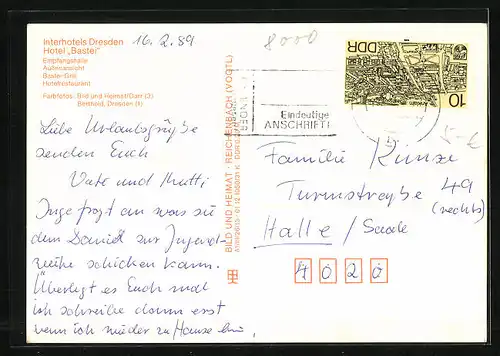 Interhotels Dresden
Hotel „Bastei"
Empfangshalle
Außenansicht
Bastei-Grill
Hotelrestaurant
Farbfotos: Bild und Heimat/Darr (3)
Berthold, Dresden (1)
16.2.89
8000
DDR
10
Eindeutige
ANSCHRIFT!
5,- €
BILD UND HEIMAT · REICHENBACH (VOGTL)
Liebe Urlaubsgrüße
senden Euch
Vati und Mutti
Inge fragt an was sie
dem David zur Jugend-
weihe schicken kann.
Überlegt es Euch mal
ich schreibe dann erst
wenn ich wieder zu Hause bin,
Familie Künze
Turmstraße 49
(rechts)
Halle / Saale
4020